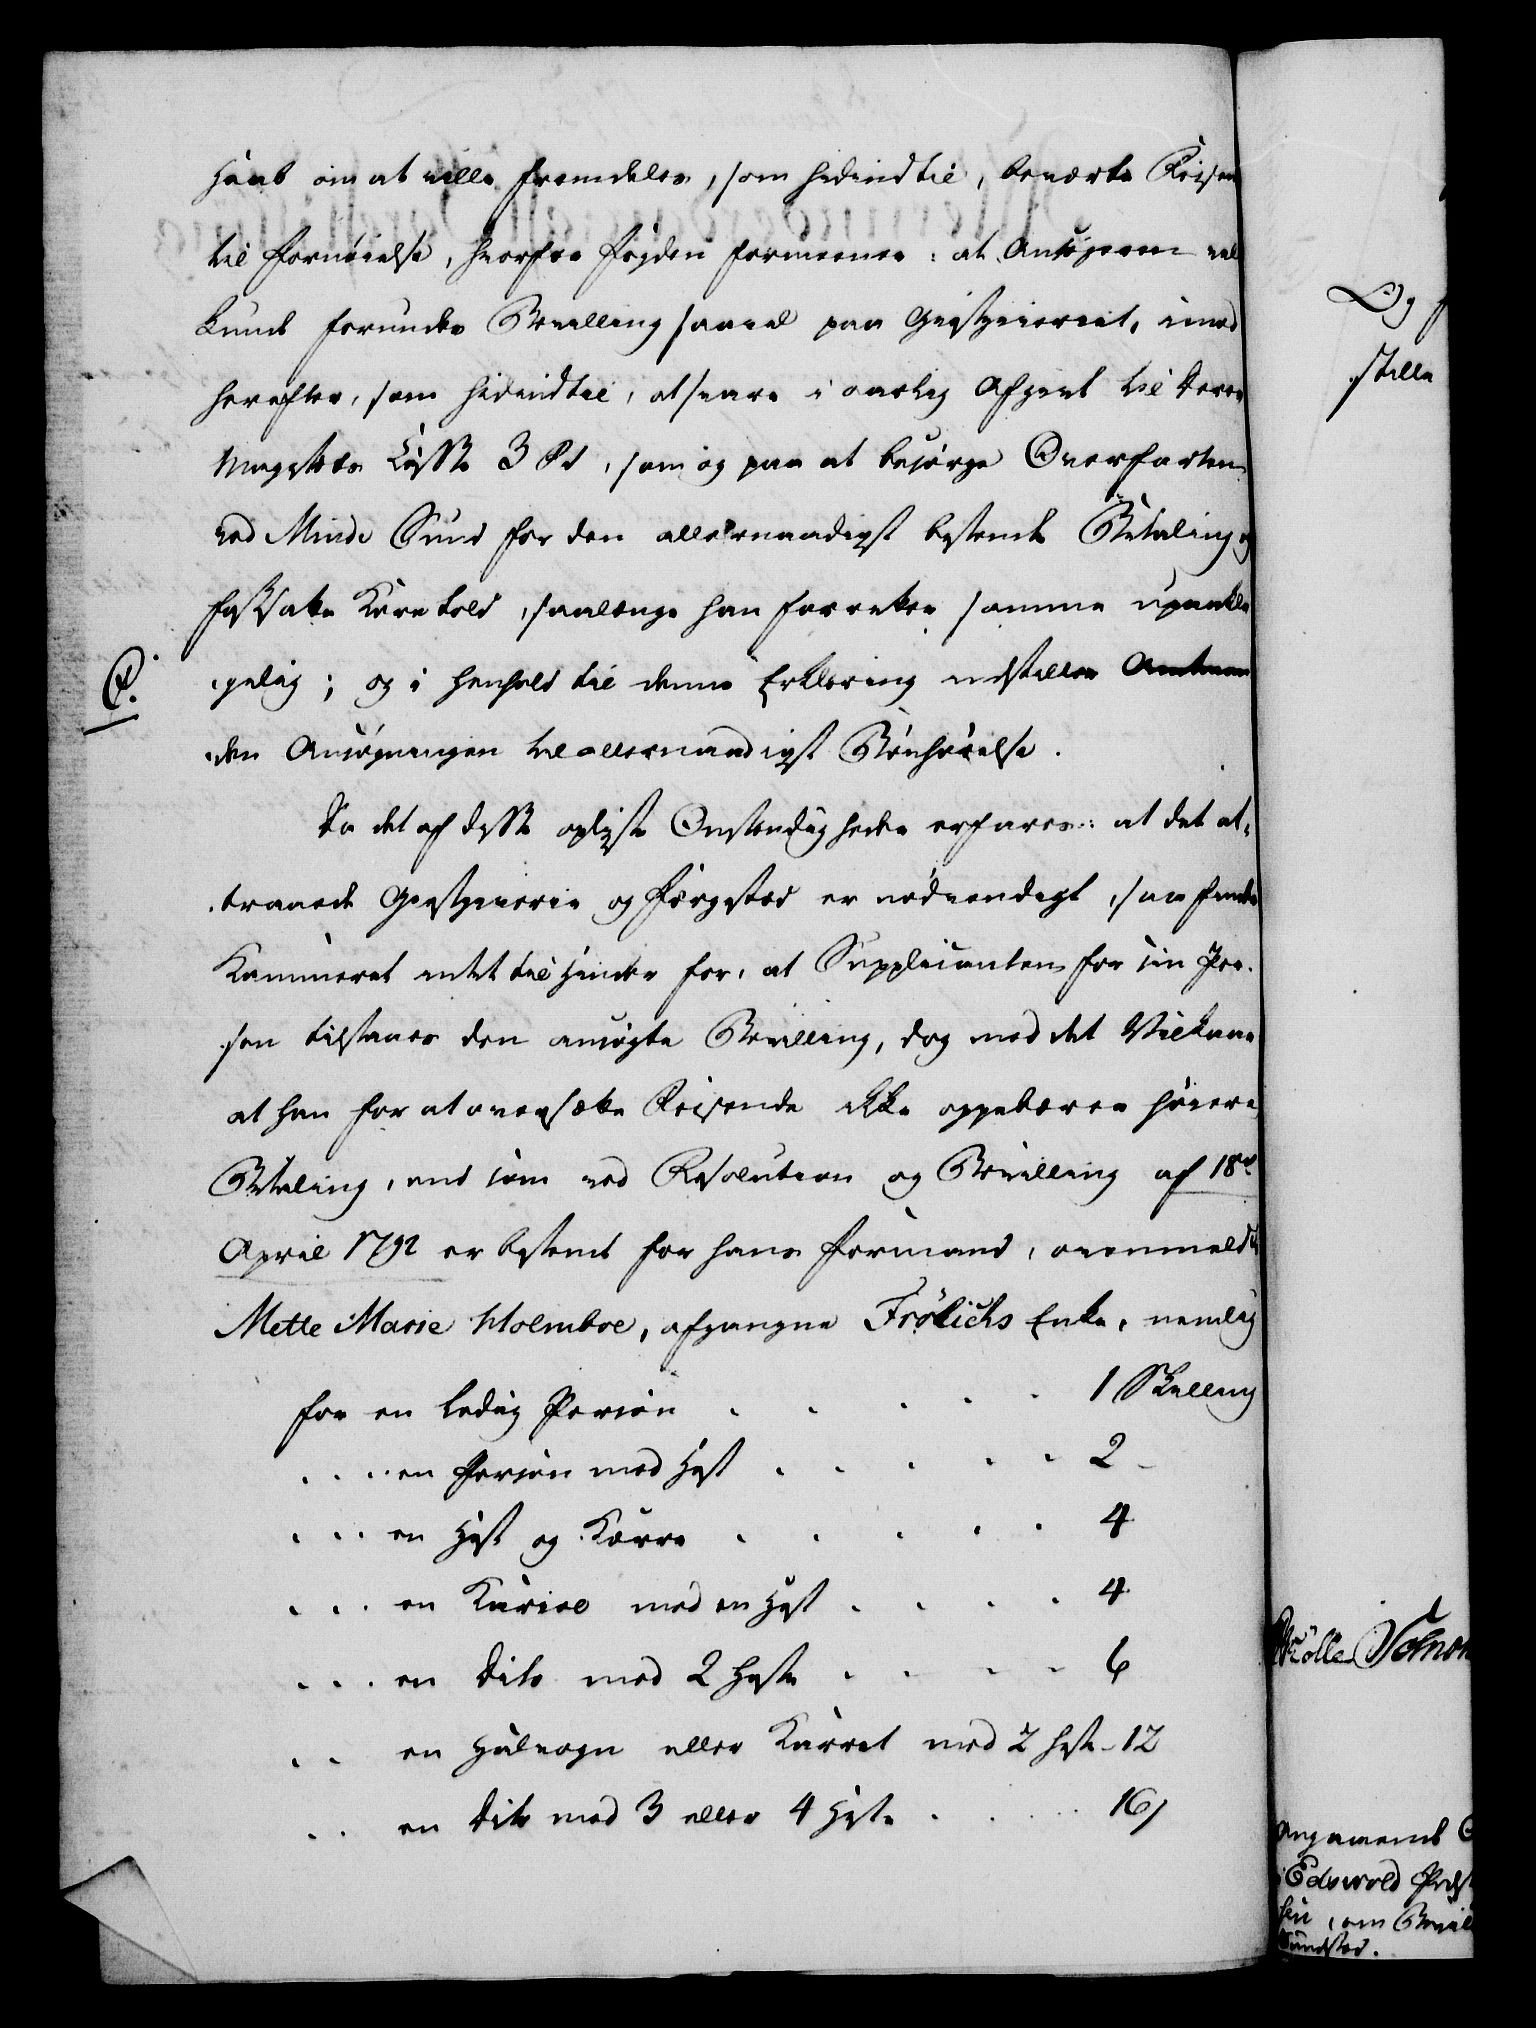 Haab om at ville fremdeles, som hidindtil, beværte Reisen
til Fornøielse, hvorfor Fogden formeener: at Ansøgeren vel
kunde forundes Bevilling saavel paa Giestgiveriet, imod
herefter, som hidindtil, at svare i aarlig Afgivt til Deres
Majestets Casse 3 Rd, som og paa at besørge Overfarten
ved Minde Sund for den allernaadigst bestemte Betaling og
fastsatte Kornetold, saalænge han forretter samme upaakla
gelig; og i Henhold til denne Erklæring indstiller Amtman
den Ansøgningen til allernaadigst Bønhørelse.
Da det af disse oplyste Omstændigheder erfares: at det at-
traaede Giestgiverie og Færgested er nødvendigt, saa finder
Kammeret intet til Hinder for, at Supplicanten for sin Per-
son tilstaaes den ansøgte Bevilling, dog med det Vilkaar
at han for at oversætte Reisende ikke oppebærer høiere
Betaling, end som ved Resolution og Bevilling af 18de
April 1792 er bestemt for hans Formand, ovenmeldte
Mette Marie Holmboe, afgangne Frölichs Enke, nemlig
for en ledig Person . . . . . 1 Skilling
. . . en Person med Hest . . . . . 2 -
. . . en Hest og Kærre . . . . . 4
. . . en Kariol med en Hest . . . . 4
. . . en dito med 2 Heste . . . . 6
. . en Hiulvogn eller Karret med 2 Heste - 12
. . en dito med 3 eller 4 Heste . . . . 16/
Og
stille
Schow
Angaaende
Edsvold Præst
om Bevil
Sundsted.